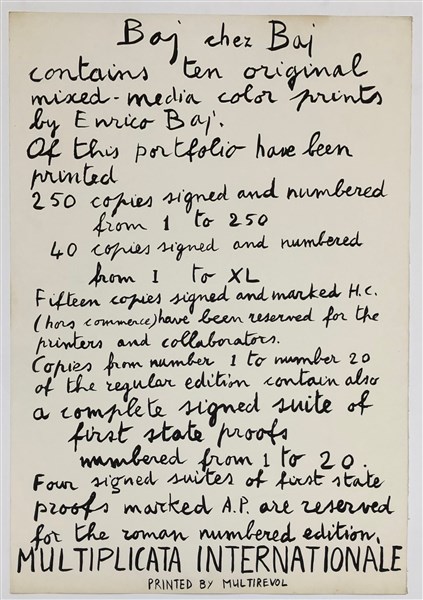 Baj chez Baj
contains ten original
mixed-media color prints
by Enrico Baj.
Of this portfolio have been
printed
250 copies signed and numbered
from 1 to 250
40 copies signed and numbered
from I to XL
Fifteen copies signed and marked H.C.
(hors commerce) have been reserved for the
printers and collaborators.
Copies from number 1 to number 20
of the regular edition contain also
a complete signed suite of
first state proofs
numbered from 1 to 20.
Four signed suites of first state
proofs marked A.P. are reserved
for the roman numbered edition.
MULTIPLICATA INTERNATIONALE
PRINTED BY MULTIREVOL